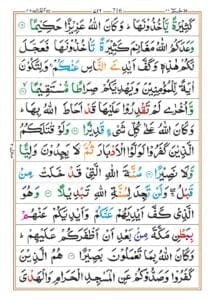 كَثِيْرَةً يَّاْخُذُوْنَهَا ؕ وَكَانَ اللّٰهُ عَزِيْزًا حَكِيْمًا
وَعَدَكُمُ اللّٰهُ مَغَانِمَ كَثِيْرَةً تَاْخُذُوْنَهَا فَعَجَّلَ
لَكُمْ هٰذِهٖ وَكَفَّ اَيْدِيَ النَّاسِ عَنْكُمْ ۚ وَلِتَكُوْنَ
اٰيَةً لِّلْمُؤْمِنِيْنَ وَيَهْدِيَكُمْ صِرَاطًا مُّسْتَقِيْمًا
وَّاُخْرٰى لَمْ تَقْدِرُوْا عَلَيْهَا قَدْ اَحَاطَ اللّٰهُ بِهَا ؕ
وَكَانَ اللّٰهُ عَلٰى كُلِّ شَيْءٍ قَدِيْرًا وَلَوْ قٰتَلَكُمُ
الَّذِيْنَ كَفَرُوْا لَوَلَّوُا الْاَدْبَارَ ثُمَّ لَا يَجِدُوْنَ وَلِيًّا
وَّلَا نَصِيْرًا سُنَّةَ اللّٰهِ الَّتِيْ قَدْ خَلَتْ مِنْ
قَبْلُ ۚ وَلَنْ تَجِدَ لِسُنَّةِ اللّٰهِ تَبْدِيْلًا وَهُوَ
الَّذِيْ كَفَّ اَيْدِيَهُمْ عَنْكُمْ وَاَيْدِيَكُمْ عَنْهُمْ
بِبَطْنِ مَكَّةَ مِنْۢ بَعْدِ اَنْ اَظْفَرَكُمْ عَلَيْهِمْ ؕ وَ
كَانَ اللّٰهُ بِمَا تَعْمَلُوْنَ بَصِيْرًا هُمُ الَّذِيْنَ
كَفَرُوْا وَصَدُّوْكُمْ عَنِ الْمَسْجِدِ الْحَرَامِ وَالْهَدْيَ